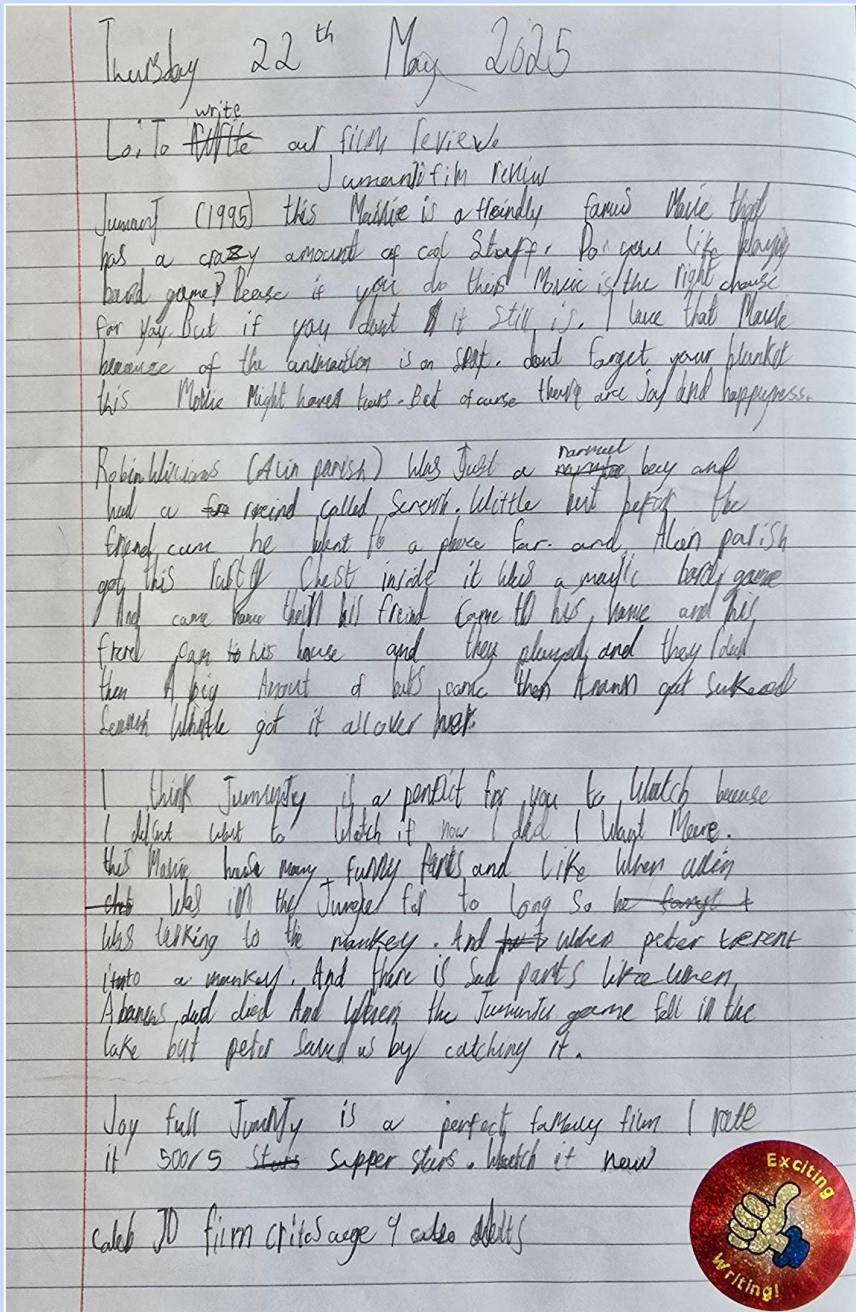 Thursday 22th May 2025
Lo: To write our film review.
Jumanji film review
Jumanj (1995) this Movie is a freindly famus Movie that
has a crazy amount of cool Stuff. Do you like playing
board game? Becase if you do this Movie is the right chouse
for you. But if you dont it still is. I love that Movie
because of the animaction is on spot. dont forget your blanket
this Movie Might haves tears. But of course there are Joy and happyness.
Robin Willians (Alin parish) was Just a narmuel boy and
had a freind called Wittle but befor the
friend came he went to a place far. and Alain parish
got this Chest inside it was a magic bord game
And came home then his freind came to his home and his
frend cam to his house and they played and they
then A big Amout of bats came then got Sukeed
Whittle got it all over her.
I think Jumunjy is a perfict for you to Watch because
I didnt want to Watch it now I did I want More.
this Movie have many funny Parts and like When alin
was in the Jungle for to long so
was talking to the monkey. And when peter
into a monkey. And there is Sad parts like when
dad died And When the Jumunji game fell in the
lake but peter saved us by catching it.
Joy full Jumnjy is a perfect famuly film I rate
it 500/5 supper stars. Watch it now
caleb JD film crites age 9
Exciting
Writing!